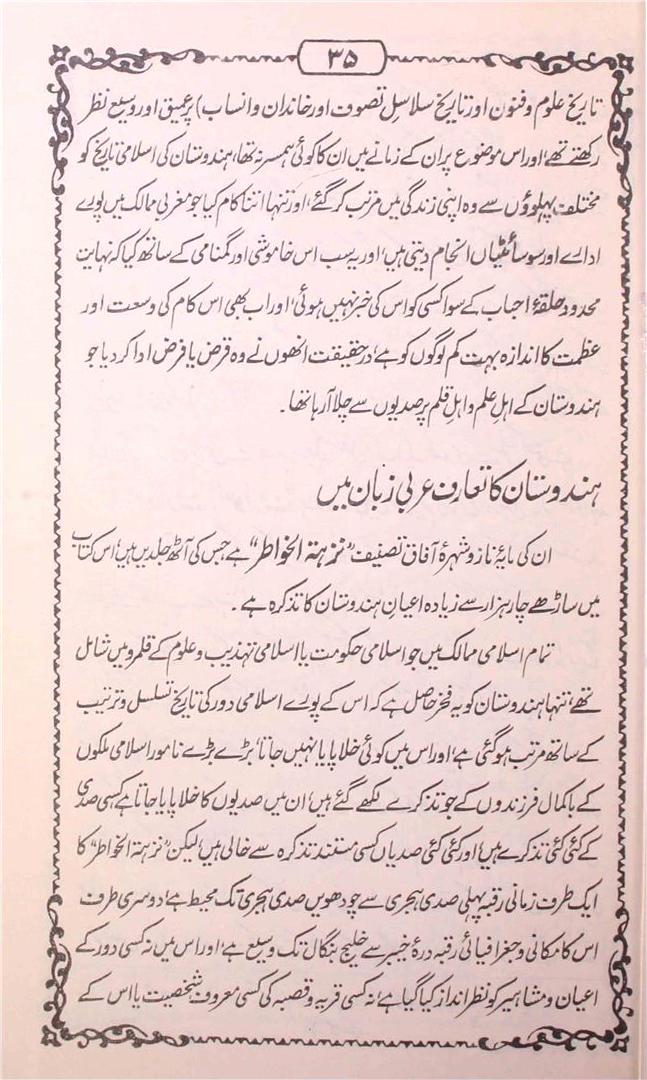 ۳۵
تاریخ علوم وفنون اور تاریخ سلاسلِ تصوف اور خاندان وانساب) پر عمیق اور وسیع نظر
رکھتے تھے، اور اس موضوع پر ان کے زمانے میں ان کا کوئی ہمسر نہ تھا، ہندوستان کی اسلامی تاریخ کو
مختلف پہلوؤں سے وہ اپنی زندگی میں مرتب کر گئے، اور تنہا اتنا کام کیا جو مغربی ممالک میں پورے
ادارے اور سوسائٹیاں انجام دیتی ہیں، اور یہ سب اس خاموشی اور گمنامی کے ساتھ کیا کہ نہایت
محدود حلقۂ احباب کے سوا کسی کو اس کی خبر نہیں ہوئی، اور اب بھی اس کام کی وسعت اور
عظمت کا اندازہ بہت کم لوگوں کو ہے، در حقیقت انھوں نے وہ قرض یا فرض ادا کر دیا جو
ہندوستان کے اہلِ علم و اہلِ قلم پر صدیوں سے چلا آ رہا تھا۔
ہندوستان کا تعارف عربی زبان میں
ان کی مایۂ ناز و شہرۂ آفاق تصنیف "نزہۃ الخواطر" ہے جس کی آٹھ جلدیں ہیں، اس کتاب
میں ساڑھے چار ہزار سے زیادہ اعیانِ ہندوستان کا تذکرہ ہے۔
تمام اسلامی ممالک میں جو اسلامی حکومت یا اسلامی تہذیب و علوم کے قلمرو میں شامل
تھے، تنہا ہندوستان کو یہ فخر حاصل ہے کہ اس کے پورے اسلامی دور کی تاریخ تسلسل و ترتیب
کے ساتھ مرتب ہو گئی ہے، اور اس میں کوئی خلا پایا نہیں جاتا، بڑے بڑے نامور اسلامی ملکوں
کے باکمال فرزندوں کے جو تذکرے لکھے گئے ہیں، ان میں صدیوں کا خلا پایا جاتا ہے، کسی صدی
کے کئی کئی تذکرے ہیں، اور کئی کئی صدیاں کسی مستند تذکرہ سے خالی ہیں، لیکن "نزہۃ الخواطر" کا
ایک طرف زمانی رقبہ پہلی صدی ہجری سے چودھویں صدی ہجری تک محیط ہے، دوسری طرف
اس کا مکانی و جغرافیائی رقبہ درۂ خیبر سے خلیج بنگال تک وسیع ہے، اور اس میں نہ کسی دور کے
اعیان و مشاہیر کو نظر انداز کیا گیا ہے، نہ کسی قریہ و قصبہ کی کسی معروف شخصیت یا اس کے